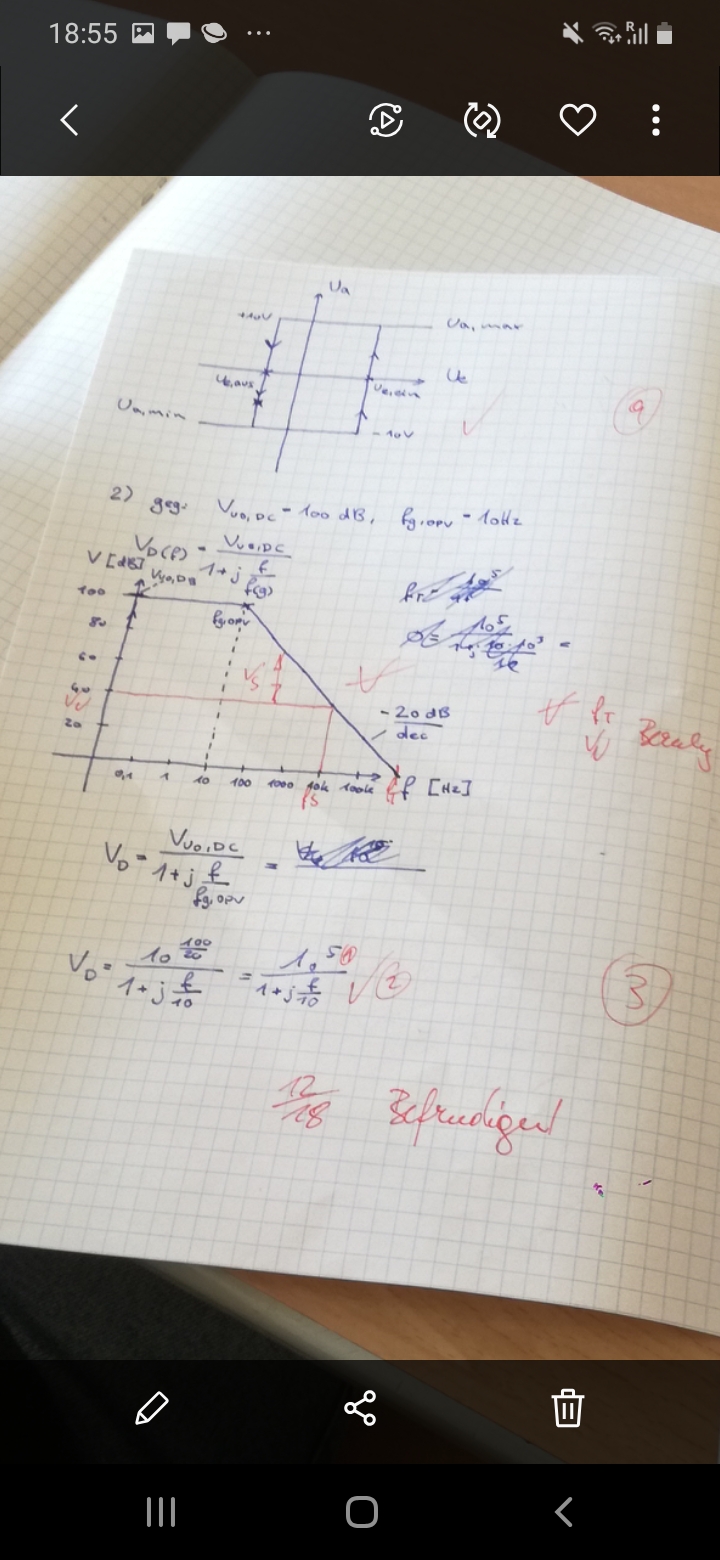 18:55
R
Ua
+10V
Ua,max
Ue
Ue,aus
Ue,ein
Ua,min
-10V
9
2) geg: Vuo,DC = 100 dB, fg,opv = 10Hz
VD(f) = Vuo,DC / 1+j f/f(g)
V [dB]
Vuo,DB
100
fg,opv
80
60
Vs
40
-20 dB / dec
20
fT
0,1 1 10 100 1000 10k 100k f [Hz]
fs
fT
VD = Vuo,DC / 1+j f/fg,opv =
VD = 10^100/20 / 1+j f/10 = 10^5 / 1+j f/10 1 2
3
12/18 Befriedigend